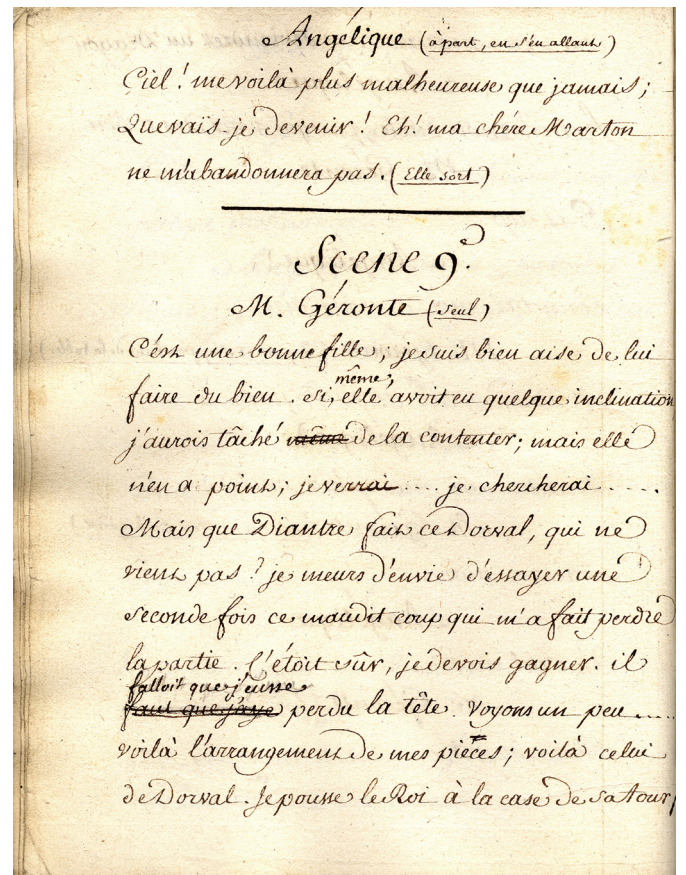 Angélique (à part, en s'en allant)
Ciel! me voilà plus malheureuse que jamais;
Que vais-je devenir! Eh! ma chére Marton
ne m'abandonnera pas. (Elle sort)
Scene 9e.
M. Géronte (seul)
C'est une bonne fille; je suis bien aise de lui
faire du bien. Si, même, elle avoit eu quelque inclination
j'aurois tâché même de la contenter; mais elle
n'en a point; je verrai .... je chercherai .....
Mais que Diantre fait ce Dorval, qui ne
vient pas? je meurs d'envie d'essayer une
seconde fois ce maudit coup qui m'a fait perdre
la partie. C'étoit sûr, je devois gagner. il
falloit que j'eusse
faut que j'aye perdu la tête. Voyons un peu .....
voilà l'arrangement de mes pièces; voilà celui
de Dorval. Je pousse le Roi à la case de sa Tour,